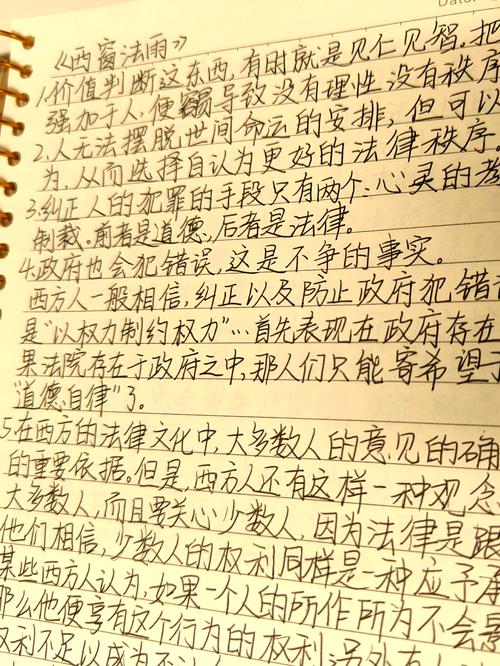 Date:
《西窗法雨》
1.价值判断这东西,有时就是见仁见智。把
强加于人,便易导致没有理性没有秩序
2.人无法摆脱世间命运的安排,但可以
为,从而选择自认为更好的法律秩序。
3.纠正人的犯罪的手段只有两个:心灵的考
制裁。前者是道德,后者是法律。
4.政府也会犯错误,这是不争的事实。
西方人一般相信,纠正以及防止政府犯错
是“以权力制约权力”…首先表现在政府存在
果法院存在于政府之中,那人们只能寄希望于
“道德自律”了。
5.在西方的法律文化中,大多数人的意见的确
的重要依据。但是,西方人还有这样一种观念
大多数人,而且要关心少数人,因为法律是跟
他们相信,少数人的权利同样是一种应予
某些西方人认为,如果一个人的所作所为不会
那么他便享有这个行为的权利。另外
权利不足以成为